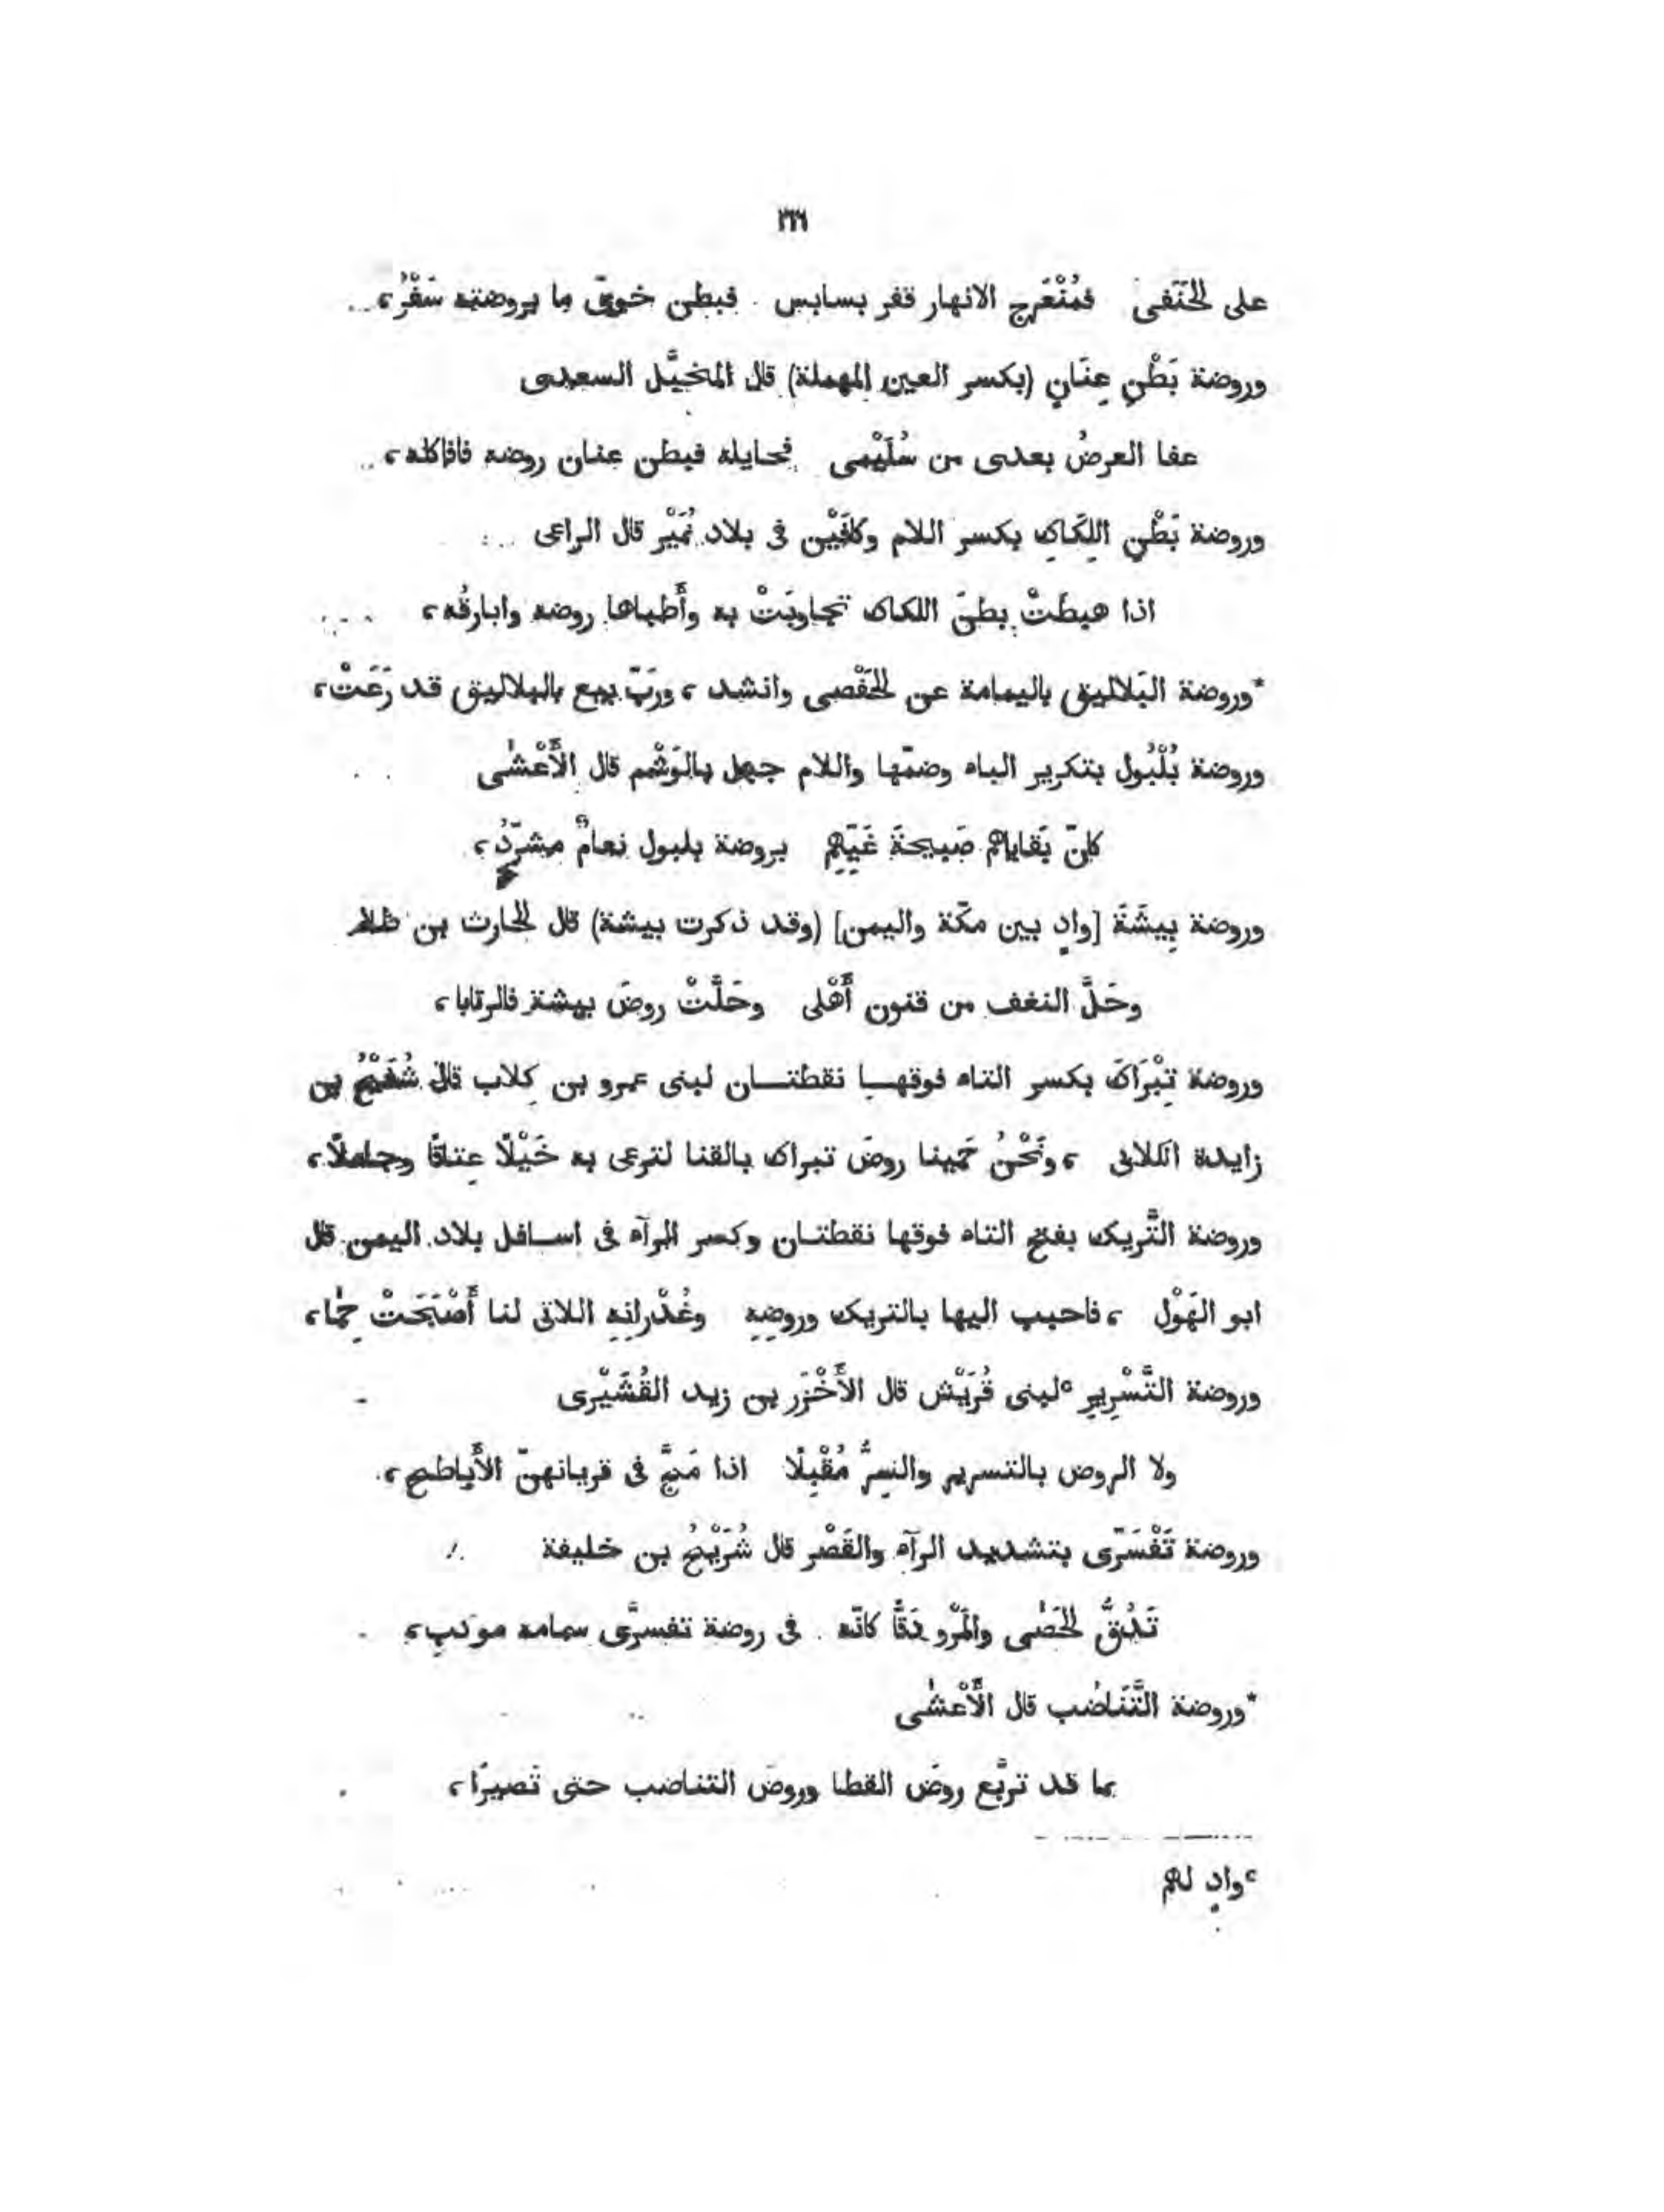 على الحَنَفى فمُنْعَرج الانهار قفر بسابس فبطن خوىّ ما بروضته سَفْرُ،
وروضة بَطْنِ عِنَانٍ (بكسر العين المهملة) قال المخبَّل السعدى
عفا العرضُ بعدى من سُلَيْمى فحايله فبطن عنان روضه فافاكله،
وروضة بَطْنِ اللِكَاكِ بكسر اللام وكافَيْن فى بلاد نُمَيْر قال الراعى
اذا هبطتْ بطنَ اللكاك تجاوبَتْ به وأَطباها روضه وابارقُه،
*وروضة البَلاليق باليمامة عن الحَفْصى وانشد، ورَبّ بيع بالبلاليق قد رَعَتْ،
وروضة بُلْبُول بتكرير الباء وضمّها واللام جبل بالوَشْم قال الأَعْشٰى
كانّ بَقاياهم صَبيحةَ غَيِّهِم بروضة بلبول نعامٌ مشرّدُ،
وروضة بِيشَةَ [وادٍ بين مكّة واليمن] (وقد ذكرت بيشة) قال الحارث بن ظالم
وحَلَّ النغف من قنون أَهْلى وحَلَّتْ روضَ بيشة فالرتابا،
وروضة تِبْرَاكَ بكسر التاء فوقها نقطتان لبنى عمرو بن كِلاب قال بن
زايدة الكلابى ، ونَحْنُ حَمينا روضَ تبراك بالقنا لترعى به خَيْلًا عِتاقًا وجاملًا،
وروضة التَّريك بفتح التاء فوقها نقطتان وكسر الرآء فى اسافل بلاد اليمن قال
ابو الهَوْل ، فاحبب اليها بالتريك وروضِهِ وغُدْرانِهِ اللاتى لنا أَصْبَحَتْ حِمًا،
وروضة التَّسْرِيرِ ᶜلبنى قُرَيْش قال الأَخْزَر بن زيد القُشَيْرى
ولا الروض بالتسرير والسِرُّ مُقْبِلًا اذا مَجَّ فى قريانهنّ الأَباطح،
وروضة تَفْسَرّى بتشديد الرآء والقَصْر قال شُرَيْحُ بن خليفة
تَدُقُّ الحَصٰى والمَرْو دَقًّا كانّه فى روضة تفسرَّى سمامه موكب،
*وروضة التَّنَاضُب قال الأَعْشٰى
بما قد تربَّع روضَ القطا وروضَ التناضب حتى تَصيرَا،
ᶜوادٍ لهم